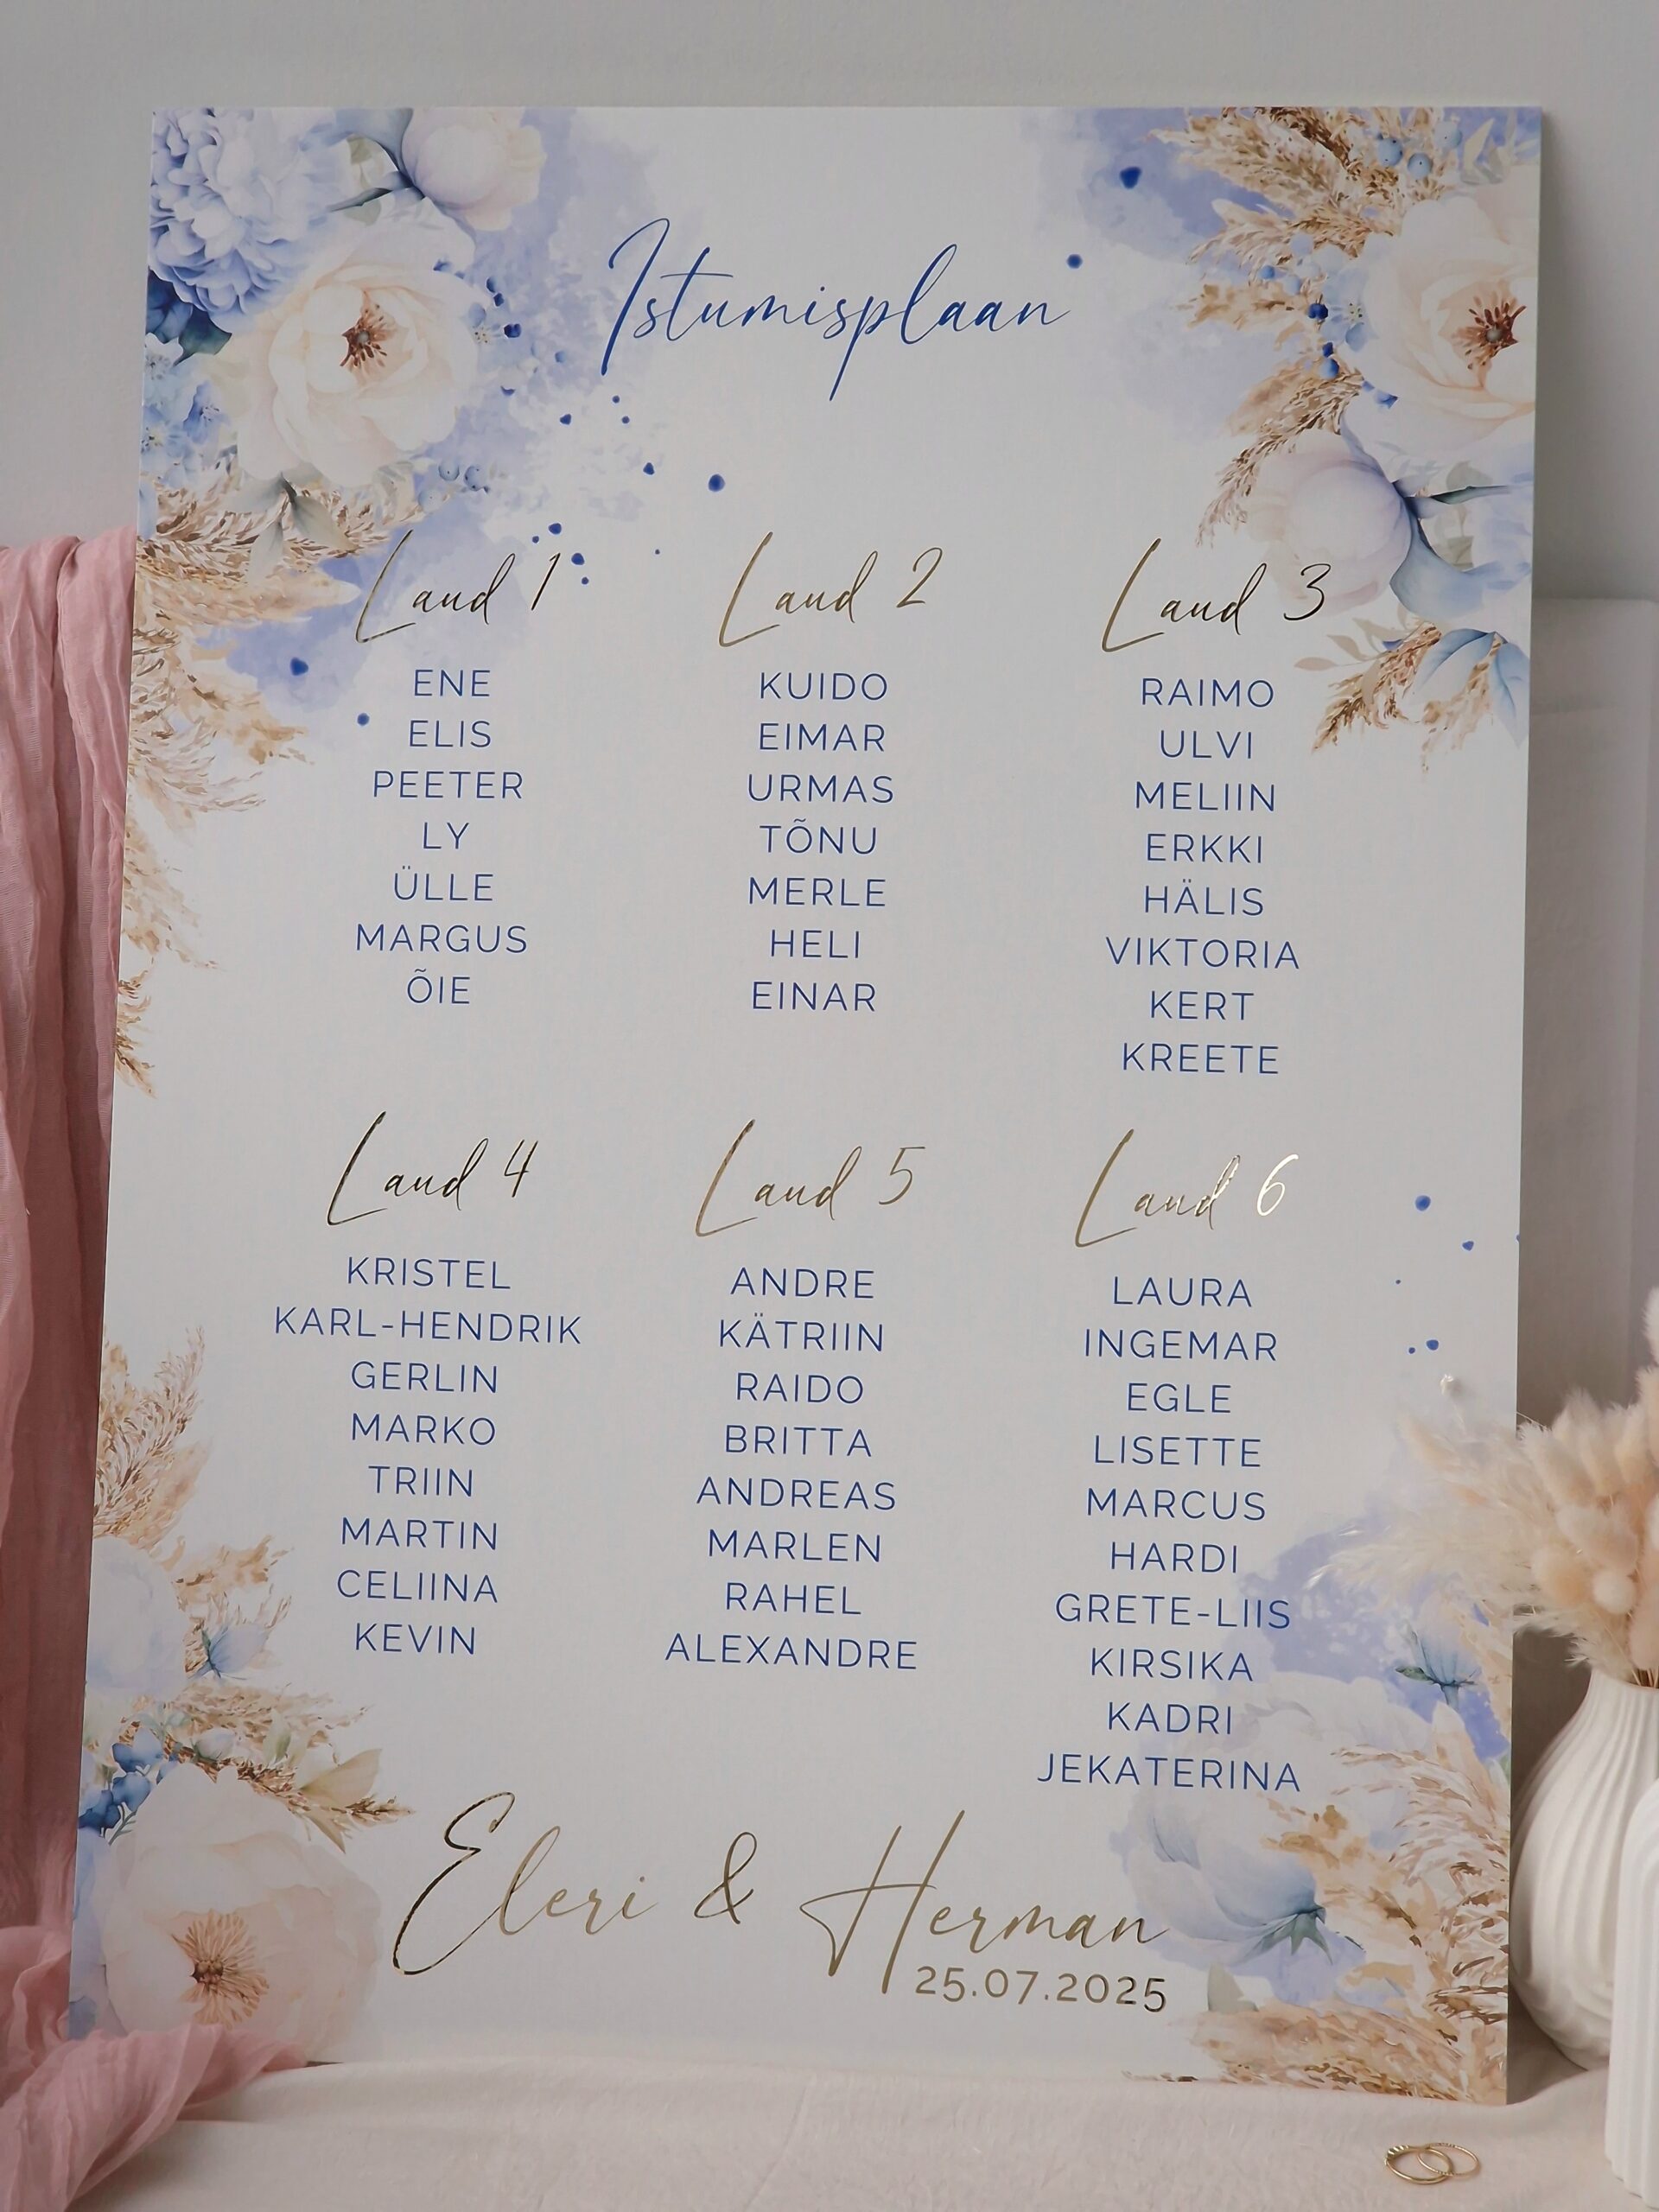 Istumisplaan
Laud 1
ENE
ELIS
PEETER
LY
ÜLLE
MARGUS
ÕIE
Laud 2
KUIDO
EIMAR
URMAS
TÕNU
MERLE
HELI
EINAR
Laud 3
RAIMO
ULVI
MELIIN
ERKKI
HÄLIS
VIKTORIA
KERT
KREETE
Laud 4
KRISTEL
KARL-HENDRIK
GERLIN
MARKO
TRIIN
MARTIN
CELIINA
KEVIN
Laud 5
ANDRE
KÄTRIIN
RAIDO
BRITTA
ANDREAS
MARLEN
RAHEL
ALEXANDRE
Laud 6
LAURA
INGEMAR
EGLE
LISETTE
MARCUS
HARDI
GRETE-LIIS
KIRSIKA
KADRI
JEKATERINA
Eleri & Herman
25.07.2025